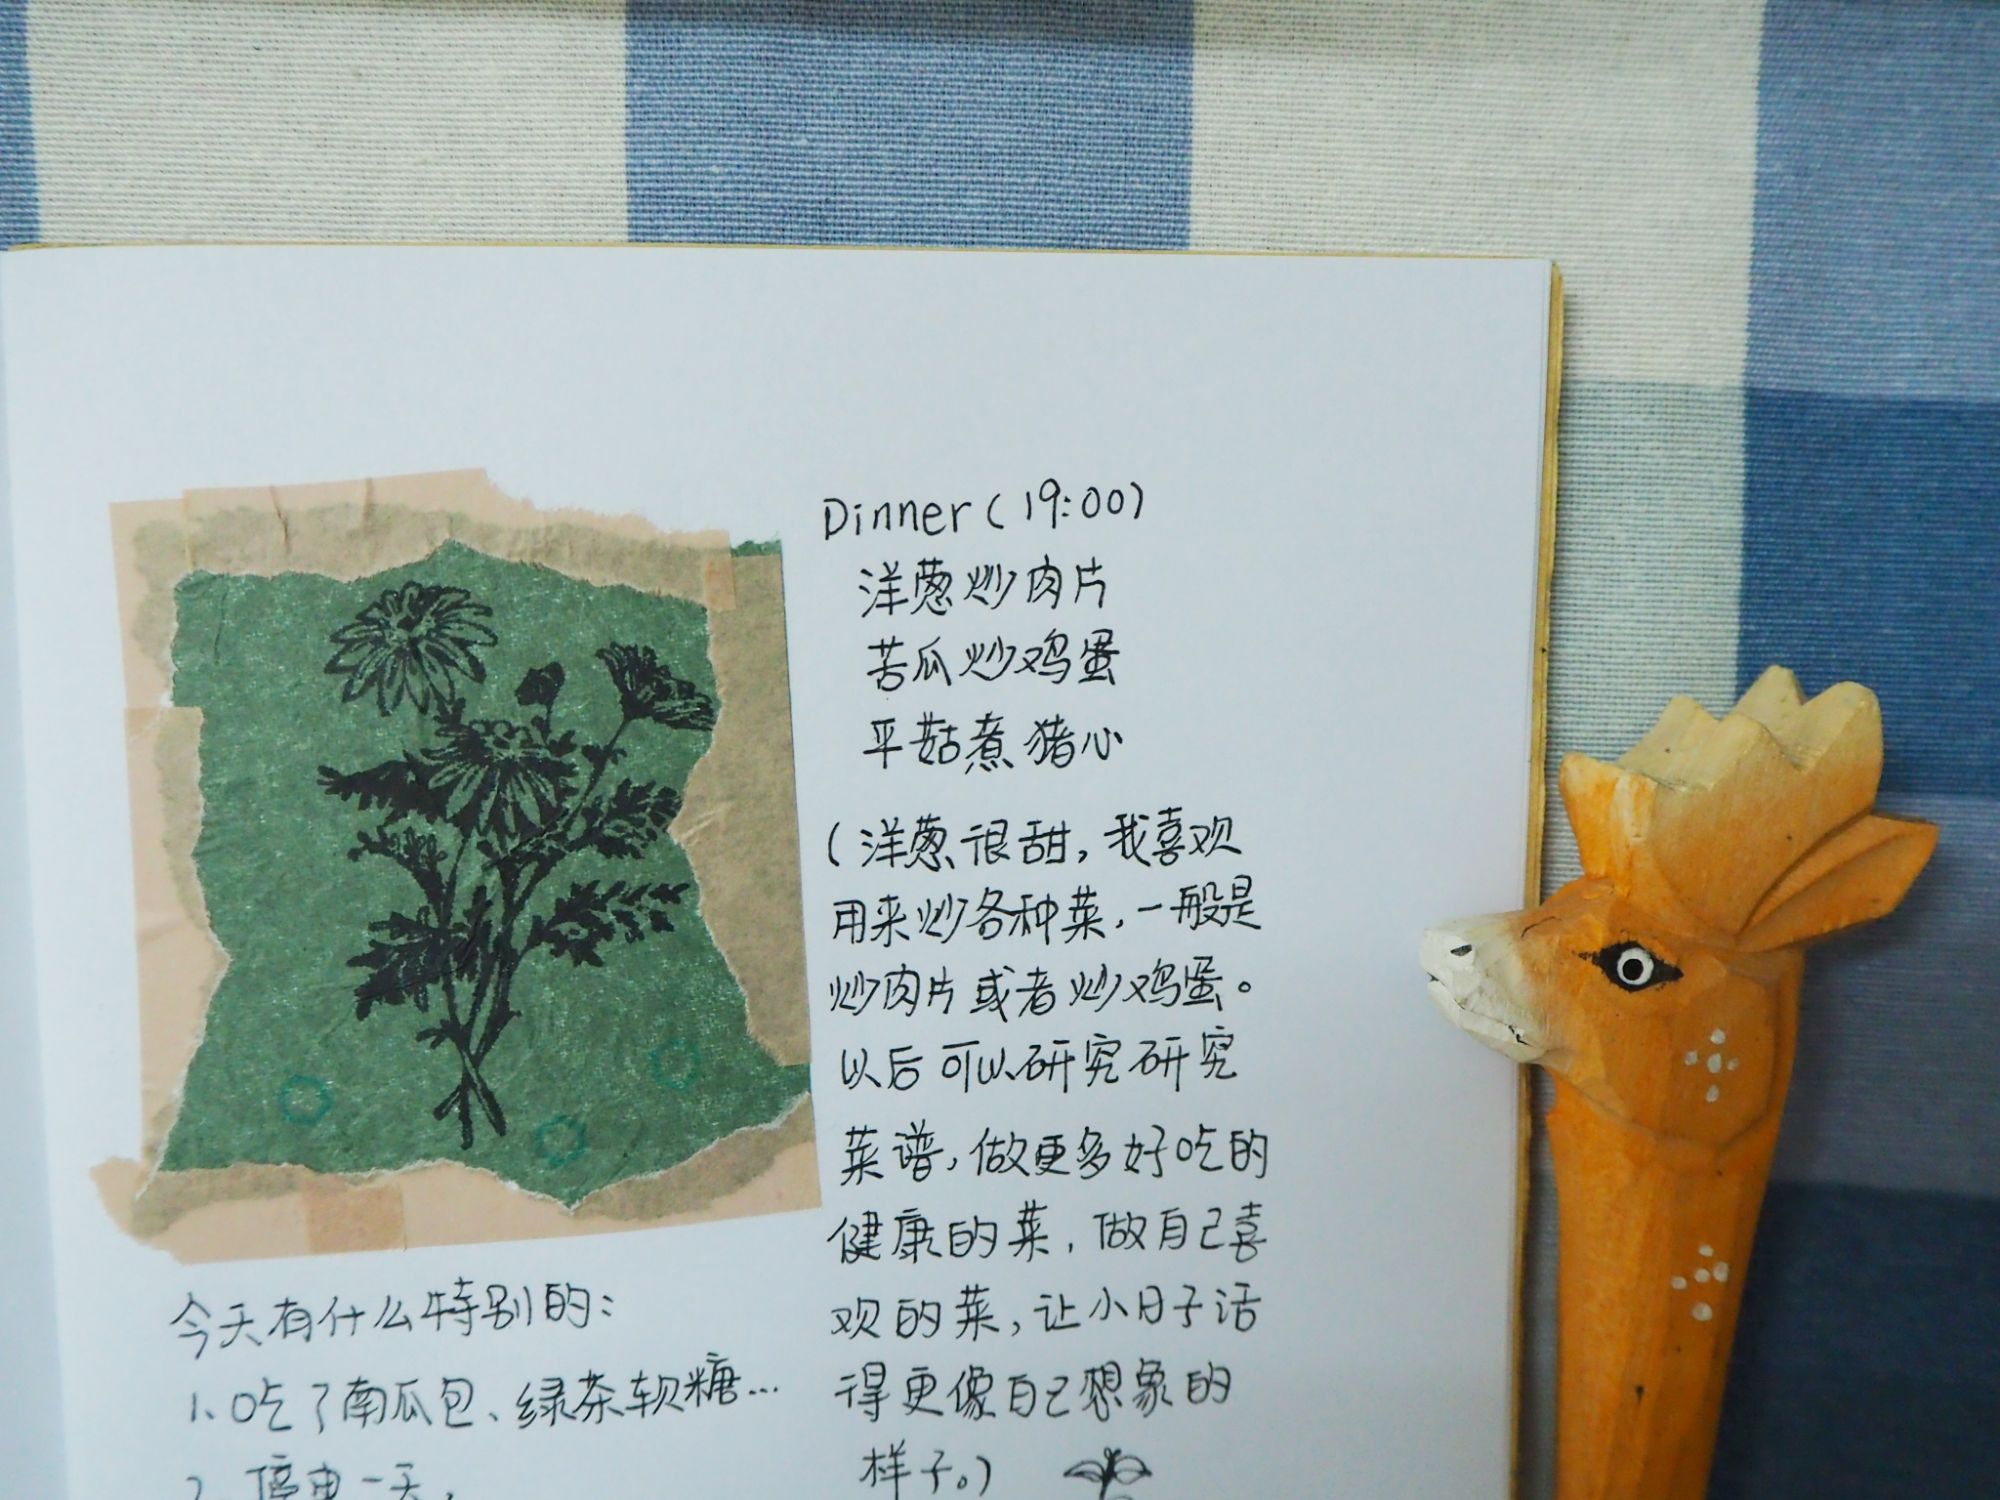 Dinner(19:00)
洋葱炒肉片
苦瓜炒鸡蛋
平菇煮猪心
(洋葱很甜,我喜欢
用来炒各种菜,一般是
炒肉片或者炒鸡蛋。
以后可以研究研究
菜谱,做更多好吃的
健康的菜,做自己喜
欢的菜,让小日子活
得更像自己想象的
样子。)
今天有什么特别的:
1、吃了南瓜包、绿茶软糖…
2、停电一天,